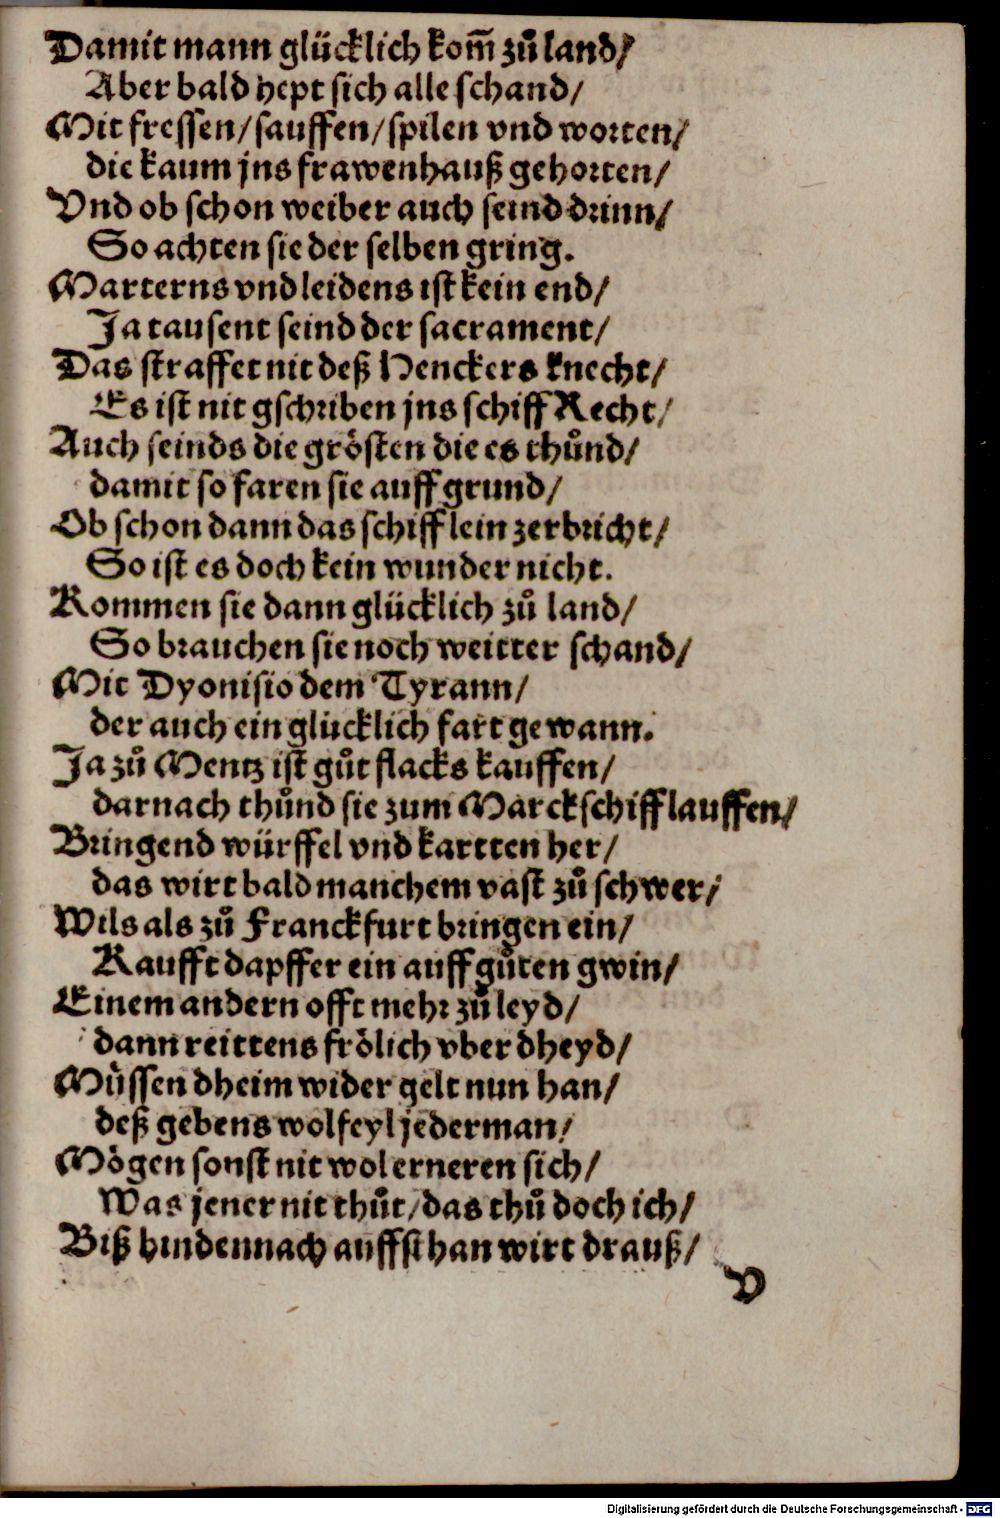 Damit mann glücklich kom̃ zů land/
Aber bald hept sich alle schand/
Mit fressen/sauffen/spilen vnd worten/
die kaum jns frawenhauß gehorten/
Vnd ob schon weiber auch seind drinn/
So achten sie der selben gring.
Marterns vnd leidens ist kein end/
Ja tausent seind der sacrament/
Das straffet nit deß Henckers knecht/
Es ist nit gschriben jns schiff Recht/
Auch seinds die grösten die es thůnd/
damit so faren sie auff grund/
Ob schon dann das schifflein zerbricht/
So ist es doch kein wunder nicht.
Kommen sie dann glücklich zů land/
So brauchen sie noch weitter schand/
Mit Dyonisio dem Tyrann/
der auch ein glücklich fart gewann.
Ja zů Mentz ist gůt flacks kauffen/
darnach thůnd sie zum Marckschiff lauffen/
Bringend würffel vnd kartten her/
das wirt bald manchem vast zů schwer/
Wils als zů Franckfurt bringen ein/
Kaufft dapffer ein auff gůten gwin/
Einem andern offt mehr zů leyd/
dann reittens frölich vber dheyd/
Müssen dheim wider gelt nun han/
deß gebens wolfeyl jederman/
Mögen sonst nit wol erneren sich/
Was jener nit thůt/das thů doch ich/
Biß hindennach auffsthan wirt drauß/
V
Digitalisierung gefördert durch die Deutsche Forschungsgemeinschaft - DFG